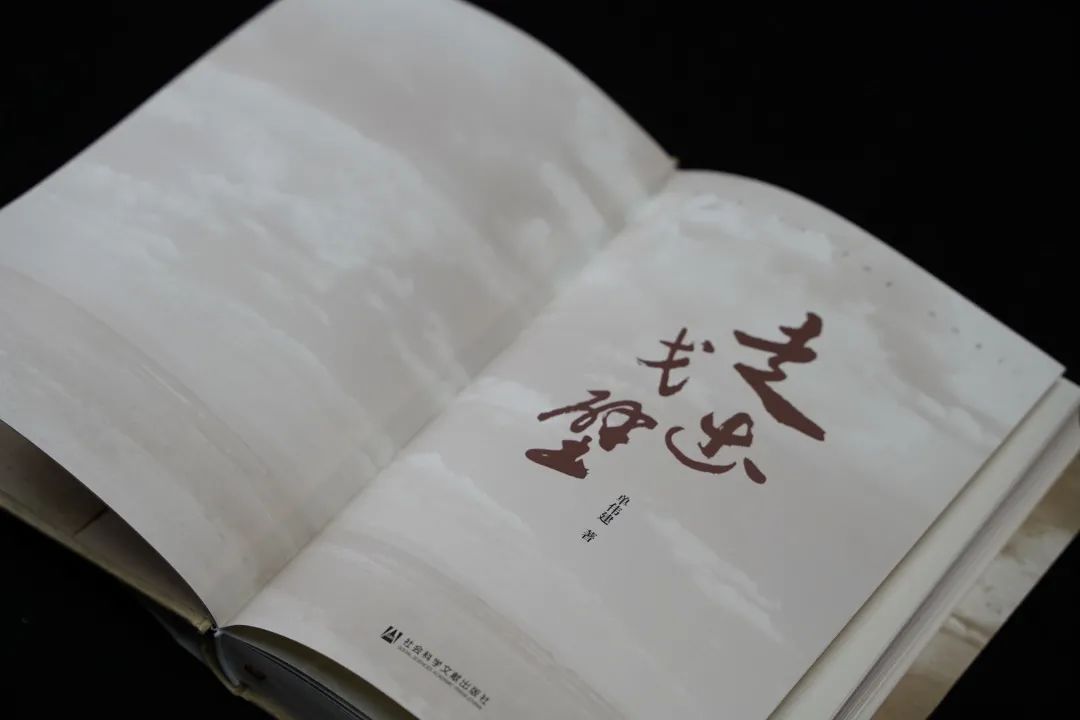 走出
戈壁
单伟建 著
社会科学文献出版社
SOCIAL SCIENCES ACADEMIC PRESS (CHINA)